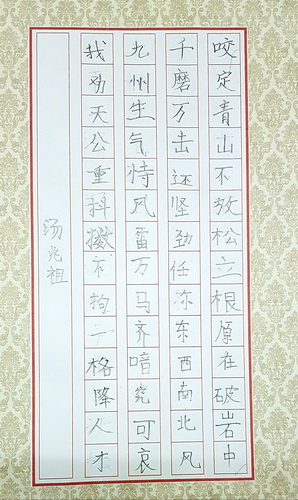 咬定青山不放松立根原在破岩中
千磨万击还坚劲任尔东西南北风
九州生气恃风雷万马齐喑究可哀
我劝天公重抖擞不拘一格降人才
汤兆祖